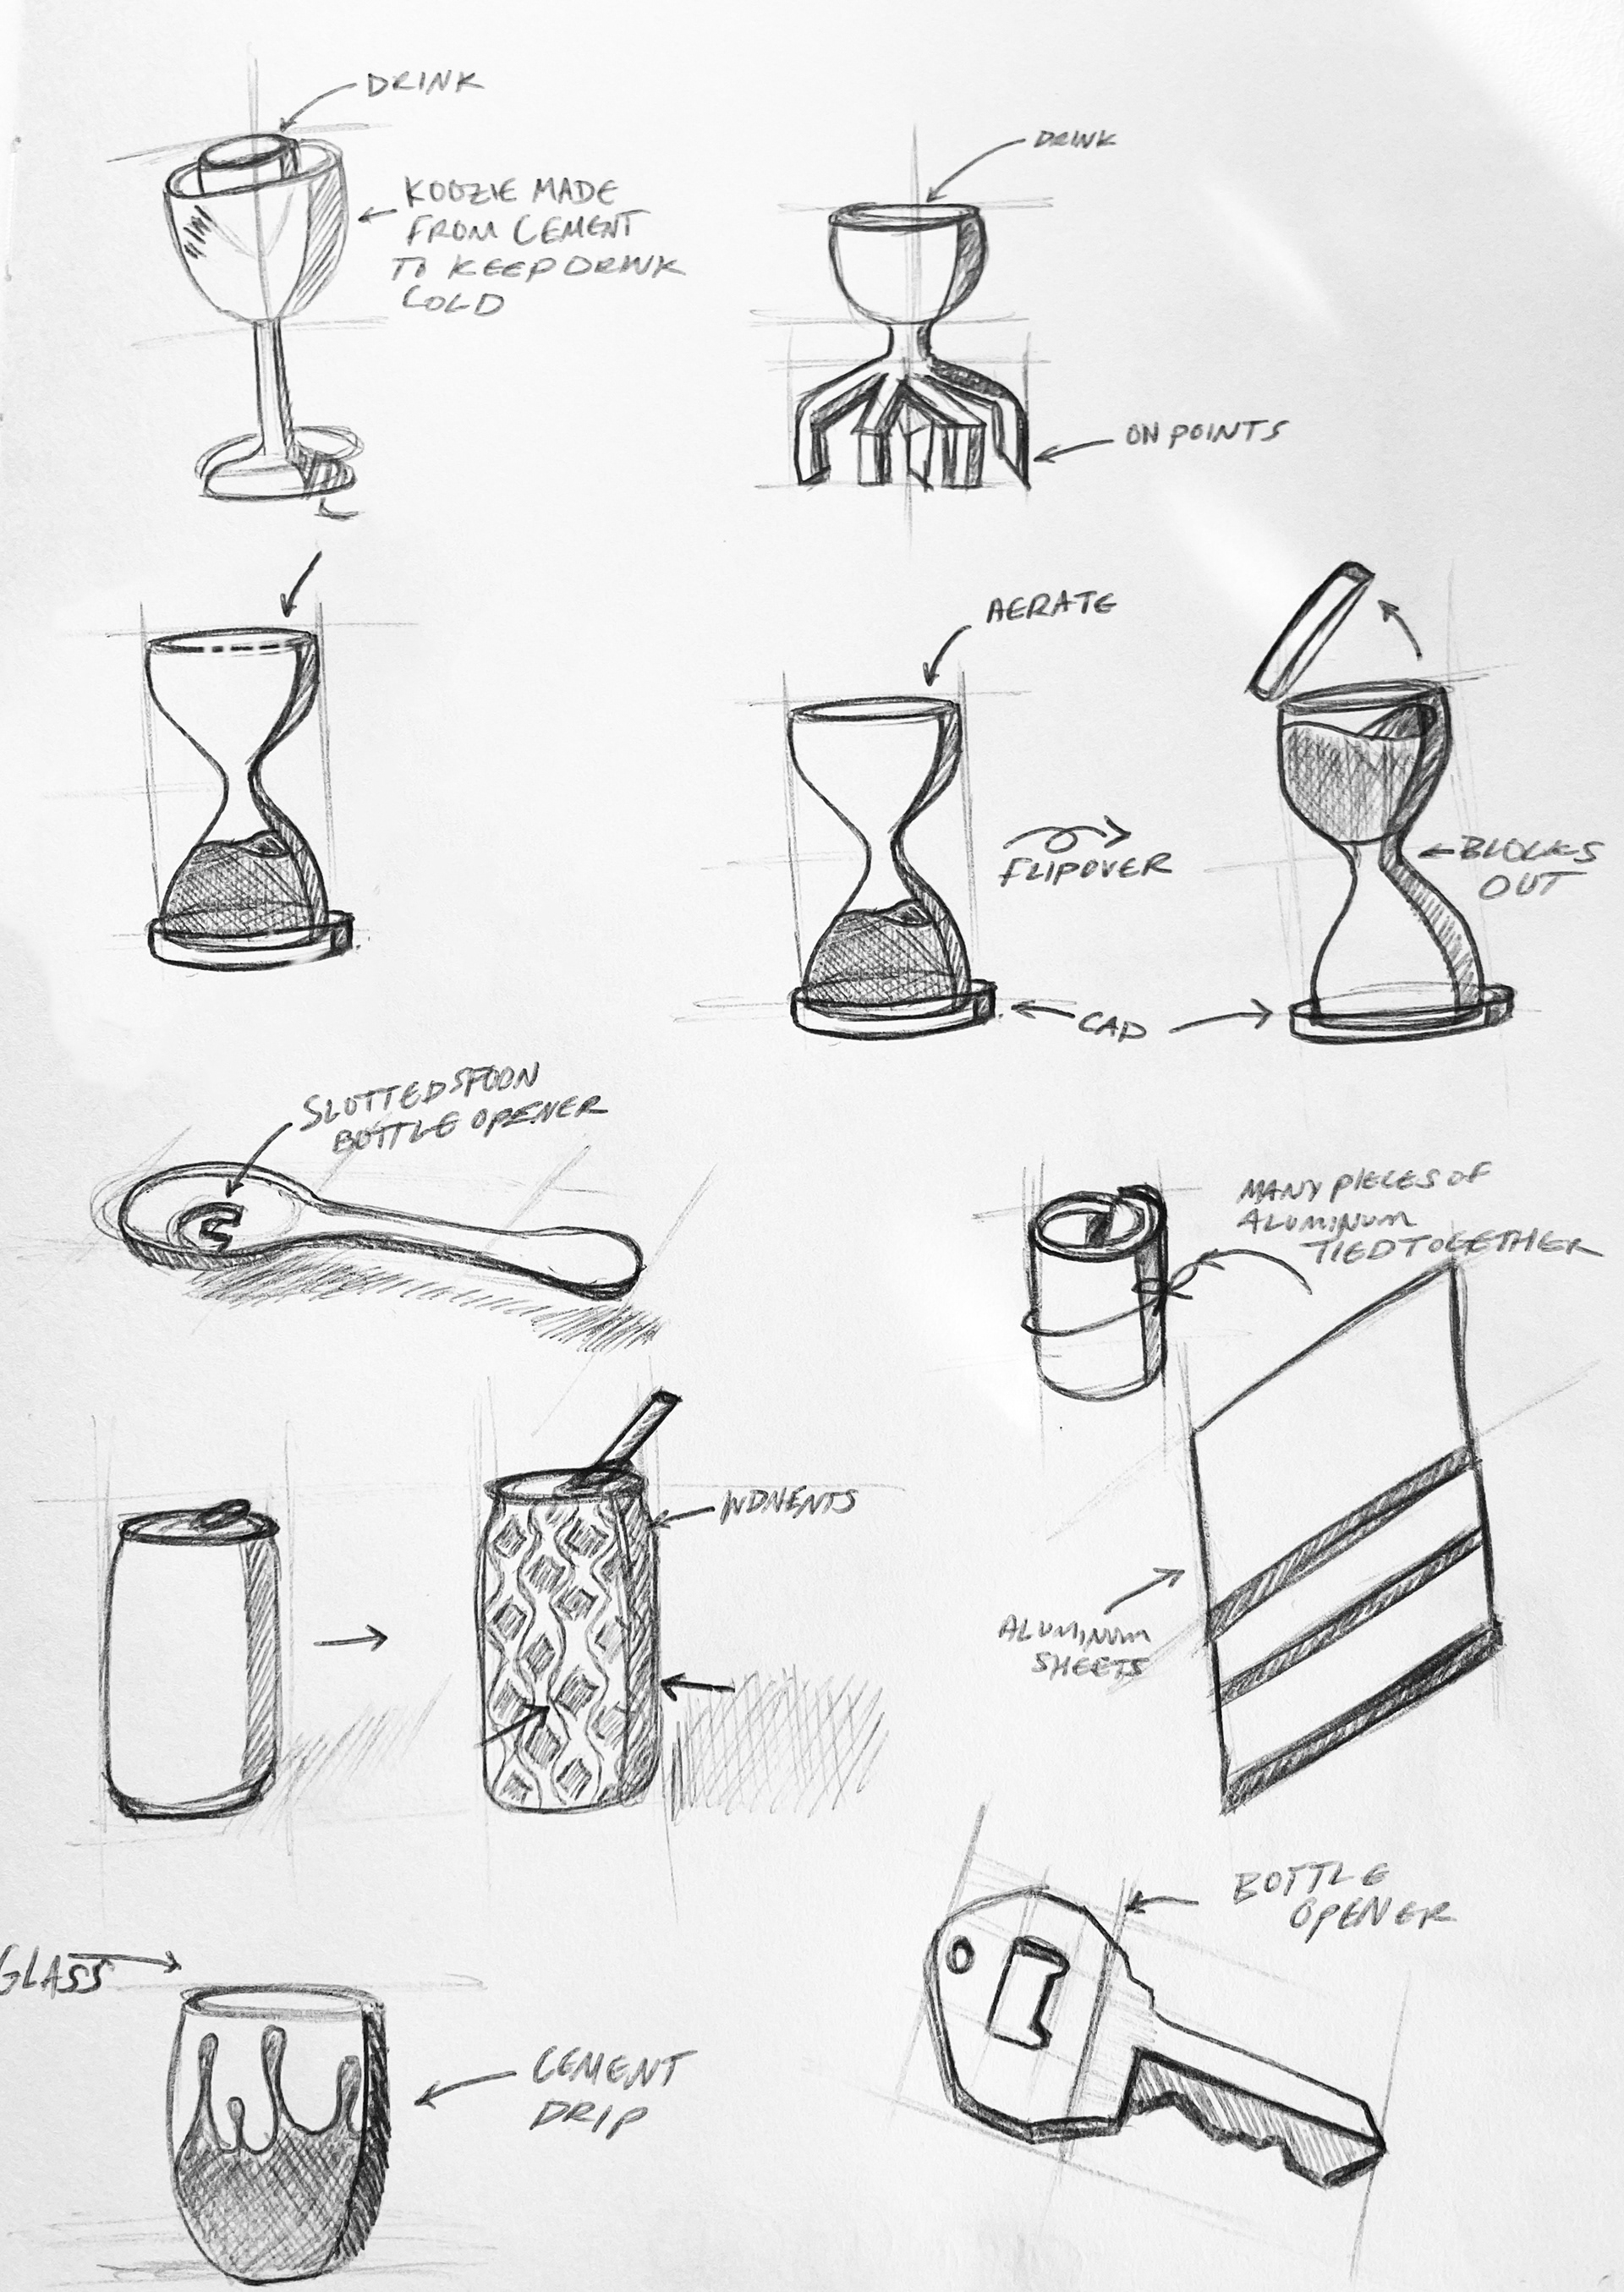 DRINK
KOOZIE MADE
FROM CEMENT
TO KEEP DRINK
COLD
DRINK
ON POINTS
AERATE
FLIPOVER
BLOCKS
OUT
CAP
SLOTTED SPOON
BOTTLE OPENER
MANY PIECES OF
ALUMINUM
TIED TOGETHER
INDNENTS
ALUMINUM
SHEETS
BOTTLE
OPENER
GLASS
CEMENT
DRIP